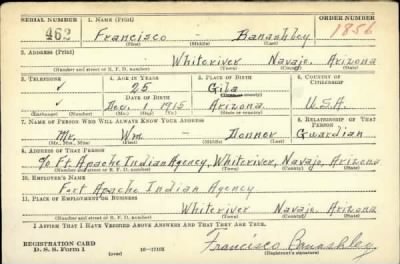 SERIAL NUMBER 1. NAME (Print) ORDER NUMBER
462 Francisco - Banashley 1856
(First) (Middle) (Last)
2. ADDRESS (Print)
Whiteriver Navajo, Arizona
(Number and street or R. F. D. number) (Town) (County) (State)
3. TELEPHONE 4. AGE IN YEARS 5. PLACE OF BIRTH 6. COUNTRY OF CITIZENSHIP
✓ 25 Gila
DATE OF BIRTH (Town or county)
✓ Dec. 1 1915 Arizona U.S.A.
(Exchange) (Number) (Mo.) (Day) (Yr.) (State or country)
7. NAME OF PERSON WHO WILL ALWAYS KNOW YOUR ADDRESS 8. RELATIONSHIP OF THAT PERSON
Mr. Wm. - Donner Guardian
(Mr., Mrs., Miss) (First) (Middle) (Last)
9. ADDRESS OF THAT PERSON
% Ft. Apache Indian Agency, Whiteriver, Navajo, Arizona
(Number and street or R. F. D. number) (Town) (County) (State)
10. EMPLOYER'S NAME
Fort Apache Indian Agency
11. PLACE OF EMPLOYMENT OR BUSINESS
Whiteriver Navajo, Arizona
(Number and street or R. F. D. number) (Town) (County) (State)
I AFFIRM THAT I HAVE VERIFIED ABOVE ANSWERS AND THAT THEY ARE TRUE.
REGISTRATION CARD
D. S. S. Form 1 (over) Francisco Banashley
(Registrant's signature)